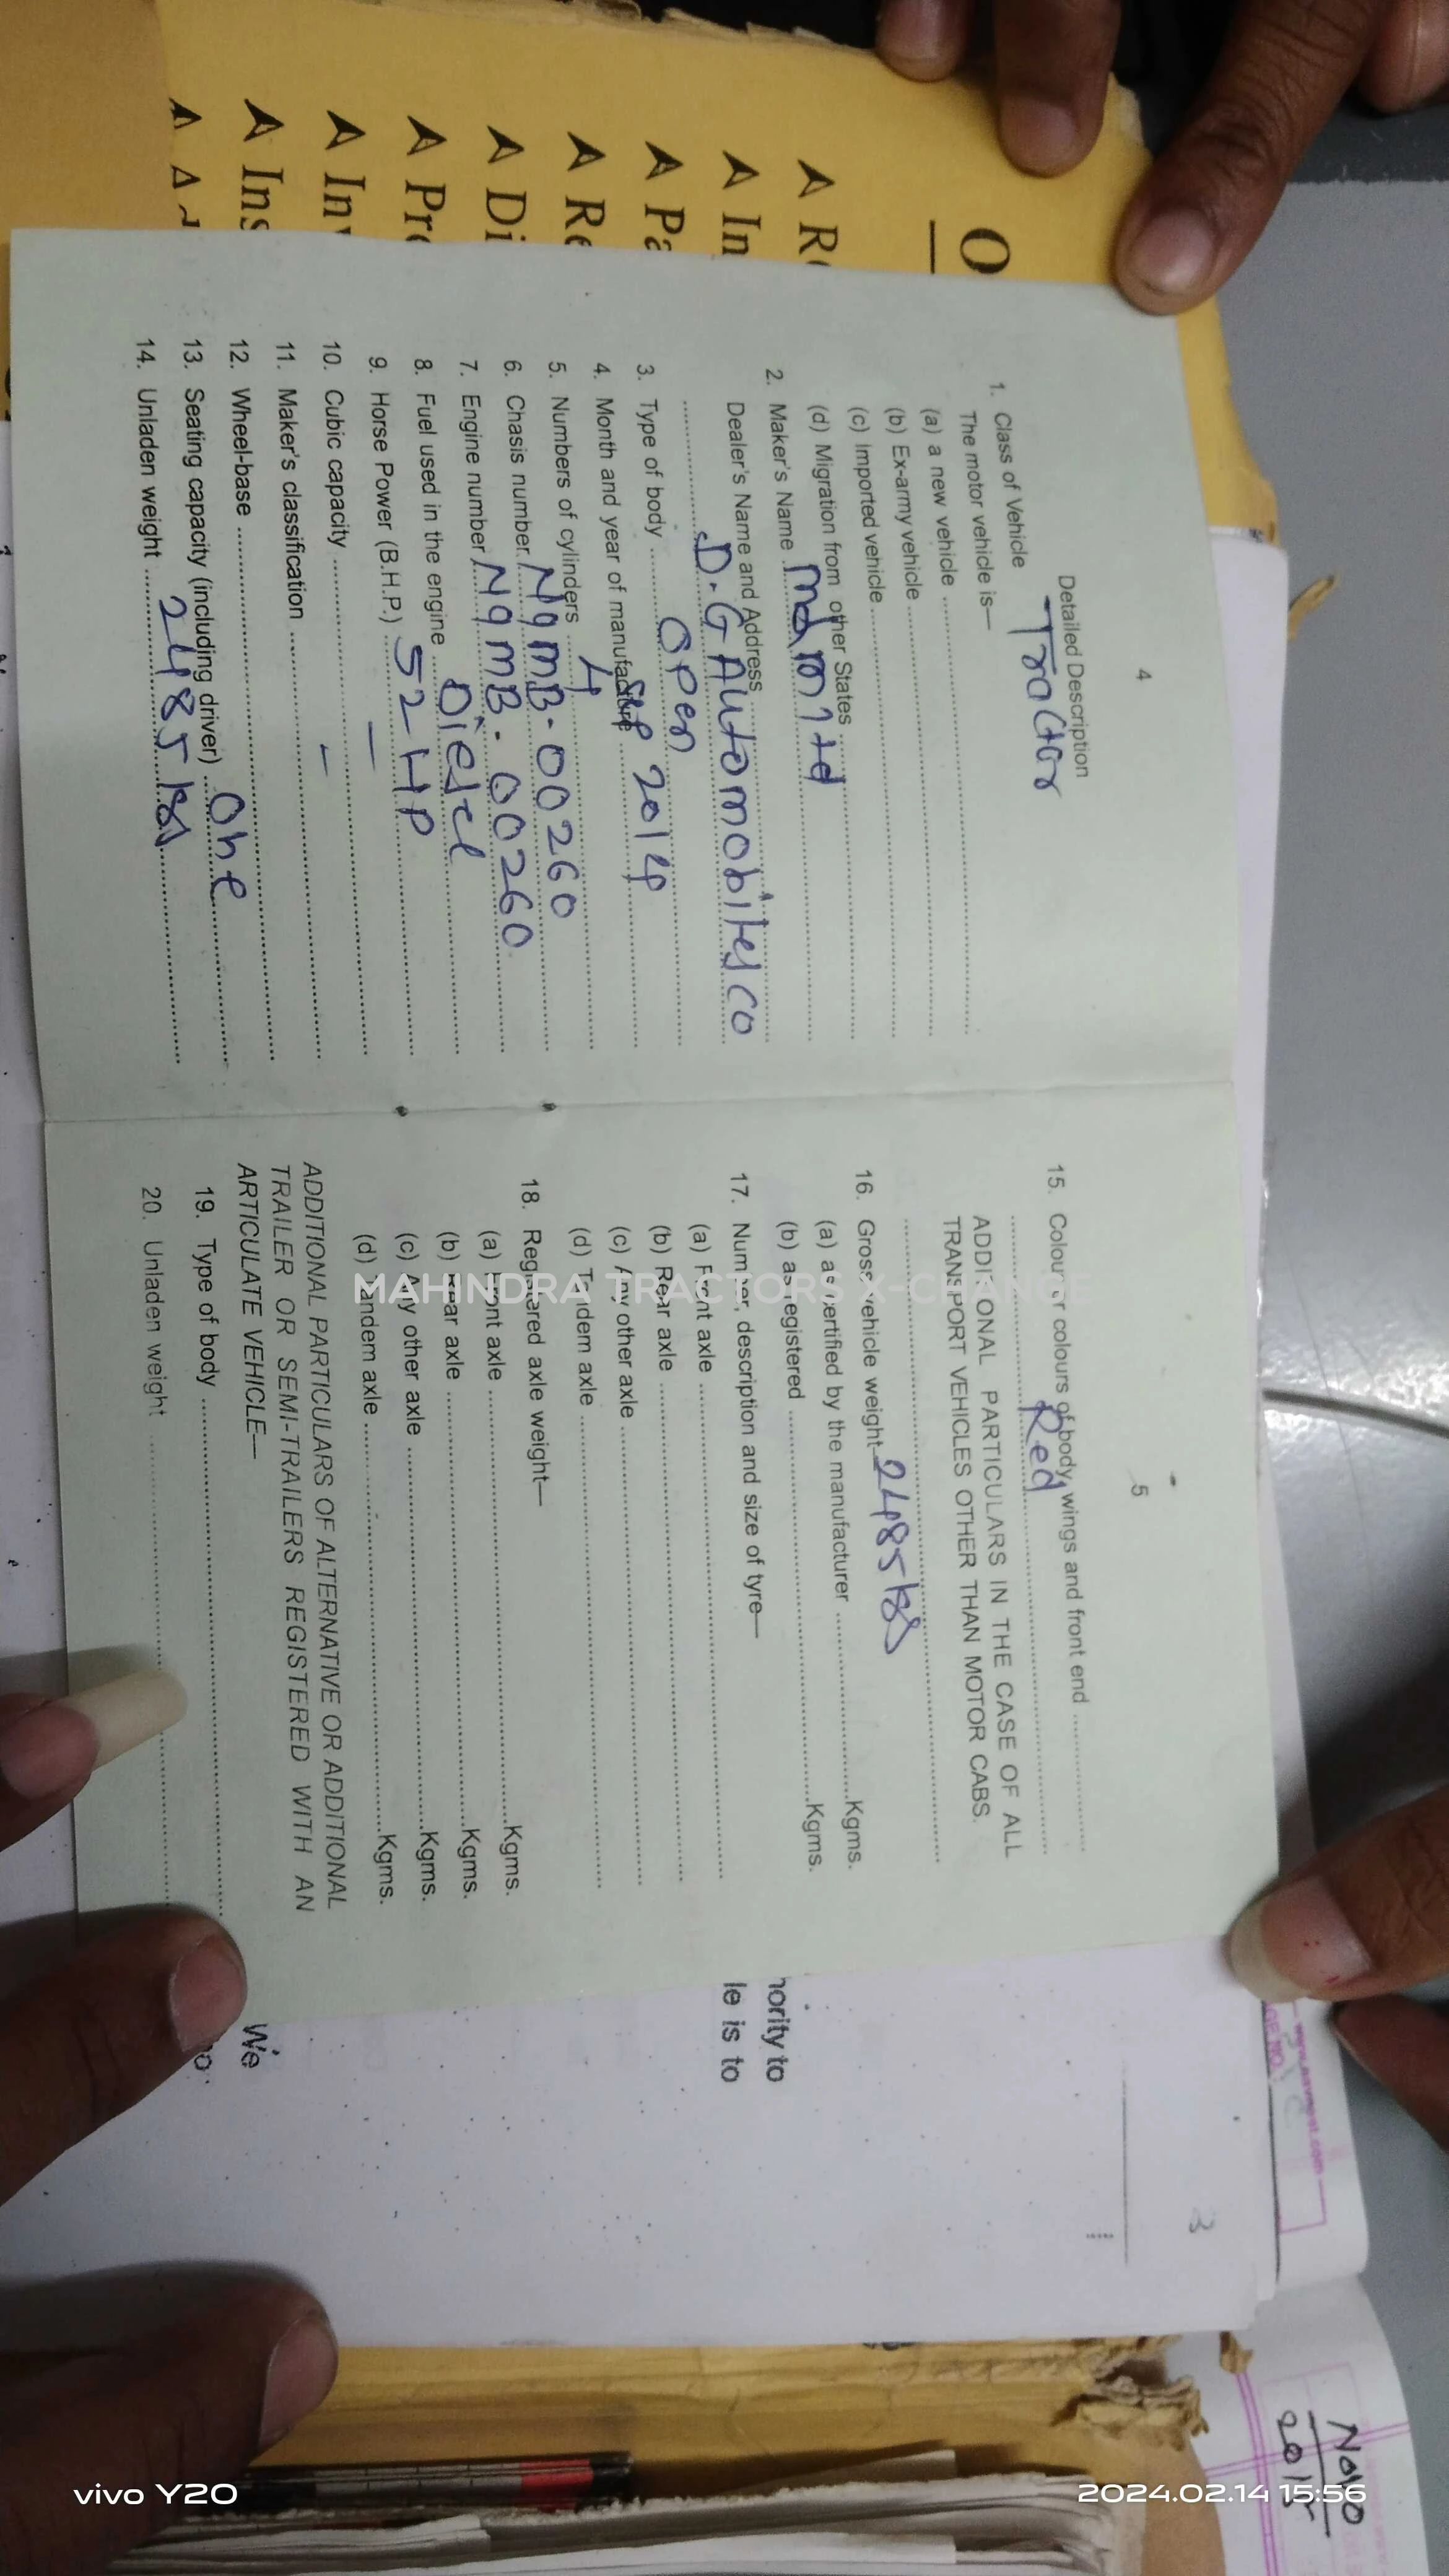 O
➤ R
➤ In
➤ Pa
➤ Re
➤ Di
➤ Pro
➤ Inv
➤ Ins
4
Detailed Description
1. Class of Vehicle Tractor
The motor vehicle is—
(a) a new vehicle
(b) Ex-army vehicle
(c) Imported vehicle
(d) Migration from other States
2. Maker's Name M&M ltd
Dealer's Name and Address
D.G Automobiles CO
3. Type of body Open
4. Month and year of manufacture Sep 2014
5. Numbers of cylinders 4
6. Chasis number. NgmB-00260
7. Engine number NgmB-00260
8. Fuel used in the engine Diesel
9. Horse Power (B.H.P.) 52 HP
10. Cubic capacity —
11. Maker's classification —
12. Wheel-base
13. Seating capacity (including driver) One
14. Unladen weight 2485 kgs
5
15. Colour or colours of body, wings and front end
Red
ADDITIONAL PARTICULARS IN THE CASE OF ALL
TRANSPORT VEHICLES OTHER THAN MOTOR CABS.
16. Gross vehicle weight 2485 kgs
(a) as certified by the manufacturer Kgms.
(b) as registered Kgms.
17. Number, description and size of tyre—
(a) Front axle
(b) Rear axle
(c) Any other axle
(d) Tandem axle
18. Registered axle weight—
(a) Front axle Kgms.
(b) Rear axle Kgms.
(c) Any other axle Kgms.
(d) Tandem axle Kgms.
ADDITIONAL PARTICULARS OF ALTERNATIVE OR ADDITIONAL
TRAILER OR SEMI-TRAILERS REGISTERED WITH AN
ARTICULATE VEHICLE—
19. Type of body
20. Unladen weight
MAHINDRA TRACTORS X-CHANGE
hority to
le is to
We
3
2015
vivo Y20
2024.02.14 15:56